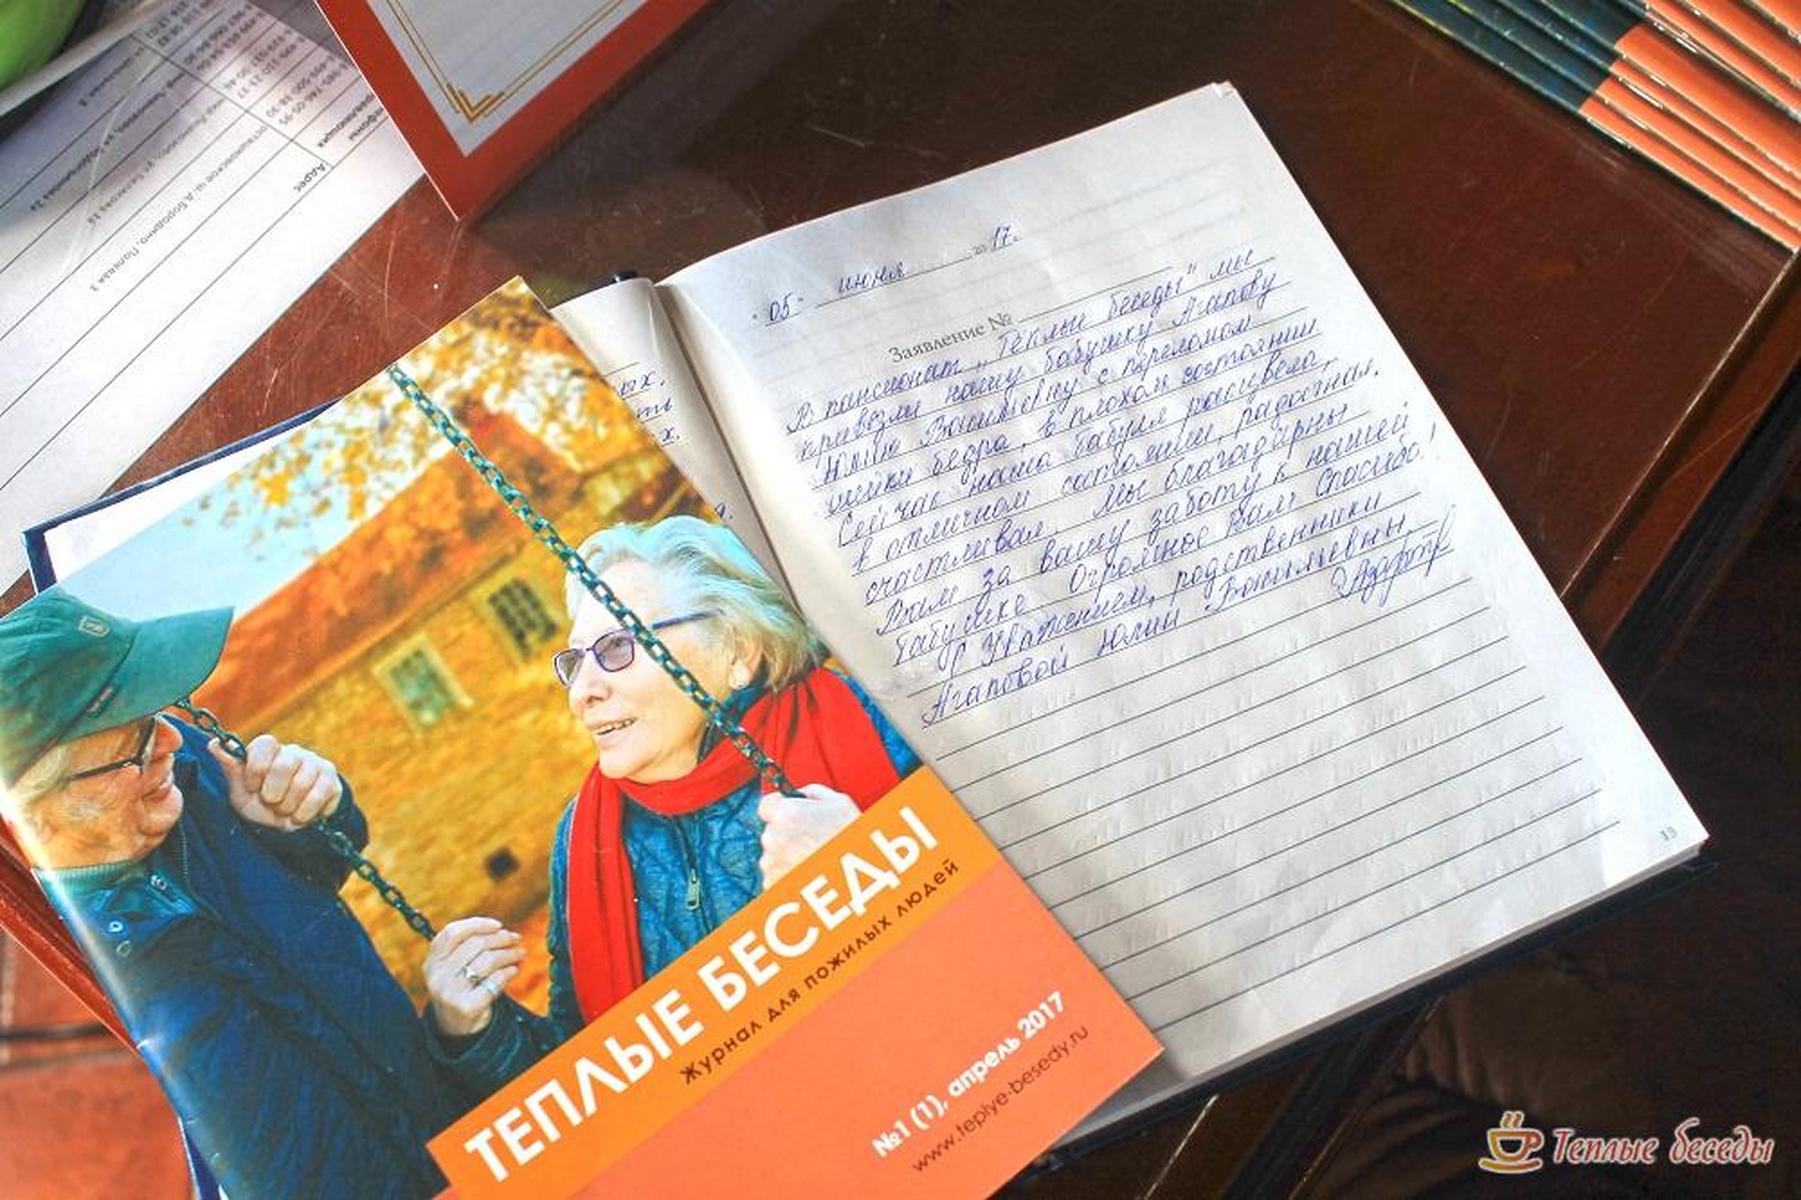 Адрес
Осташковское ш. Д. Бородино, Полевая 3
"05" июня 2017.
Заявление №
В пансионат "Теплые беседы" мы
привезли нашу бабушку Агапову
Юлию Васильевну с переломом
шейки бедра, в плохом состоянии
Сейчас наша бабуля расцвела,
в отличном состоянии, радостная,
счастливая. Мы благодарны
Вам за вашу заботу к нашей
бабушке Огромное Вам Спасибо!
С Уважением, родственники
Агаповой Юлии Васильевны
ых.
ть
х.
13
ТЕПЛЫЕ БЕСЕДЫ
Журнал для пожилых людей
№1 (1), апрель 2017
www.teplye-besedy.ru
Теплые беседы